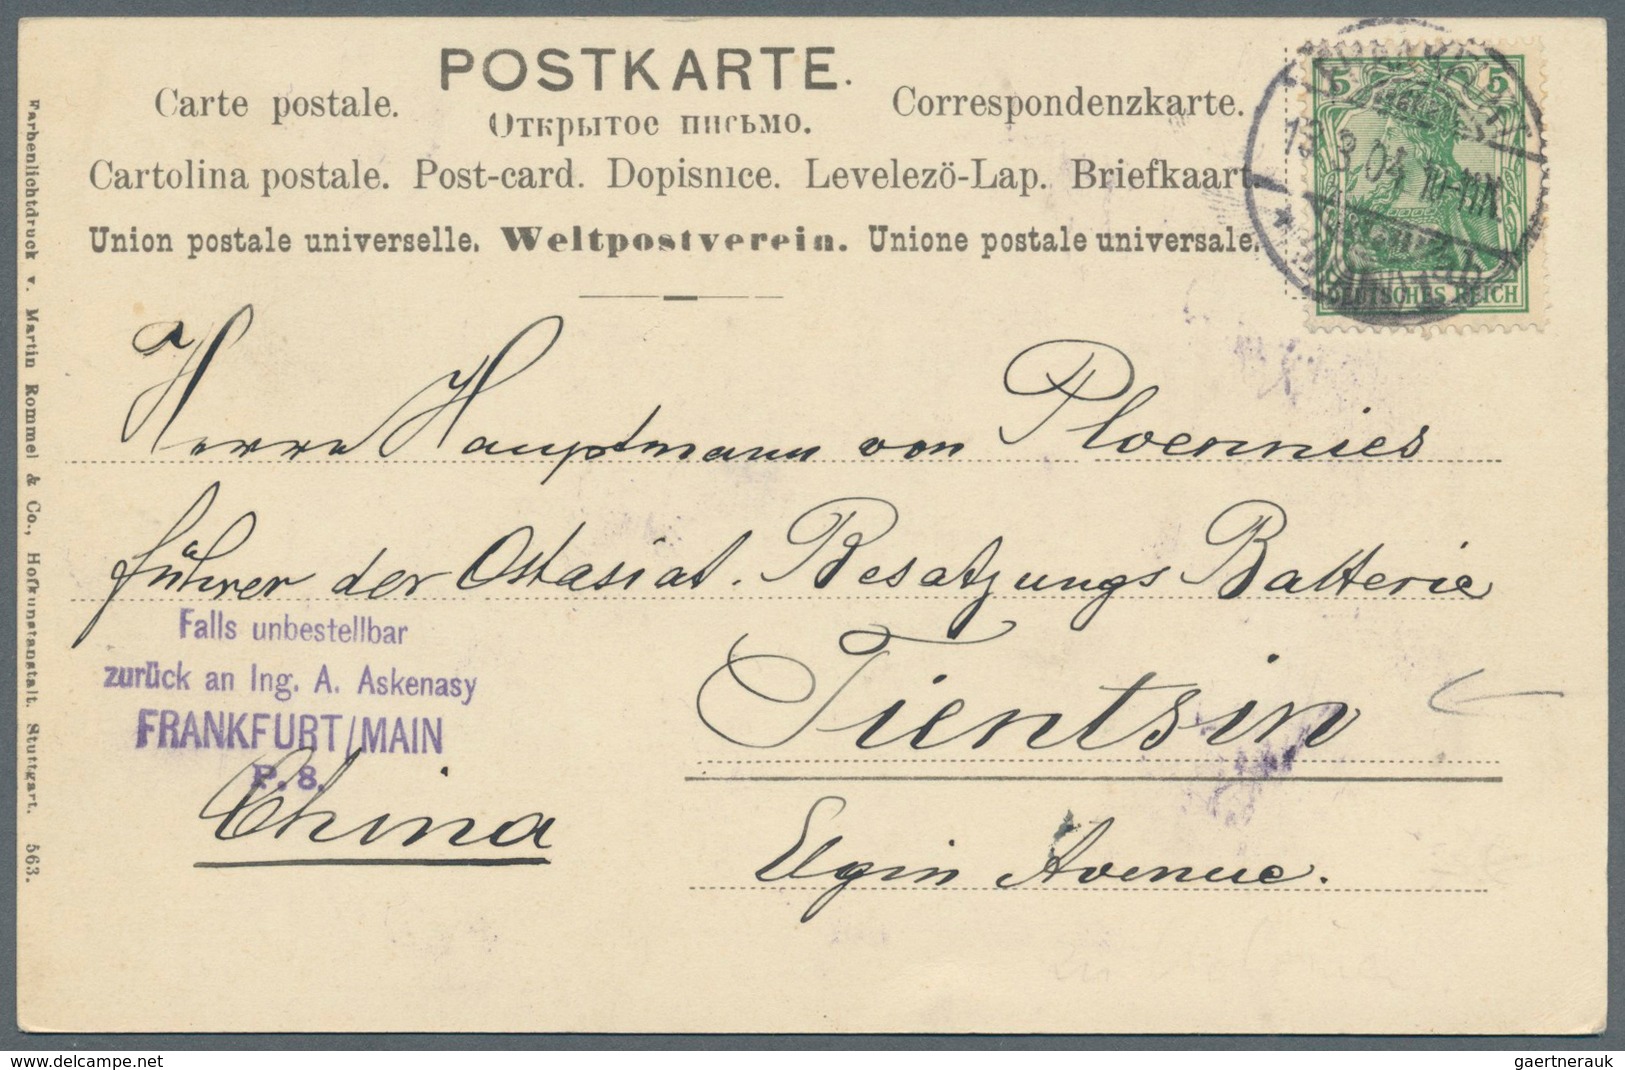 POSTKARTE.
Carte postale. Открытое письмо. Correspondenzkarte.
Cartolina postale. Post-card. Dopisnice. Levelezö-Lap. Briefkaart
Union postale universelle. Weltpostverein. Unione postale universale.
5 5
3.04 10-11N.
DEUTSCHES REICH
Herrn Hauptmann von Ploennies
führer der Ostasiat. Besatzungs Batterie
Tientsin
Elgin Avenue.
China
Falls unbestellbar
zurück an Ing. A. Askenasy
FRANKFURT/MAIN
P. 8.
Farbenlichtdruck v. Martin Rommel & Co., Hofkunstanstalt. Stuttgart. 563.
delcampe.net
gaertnerauk